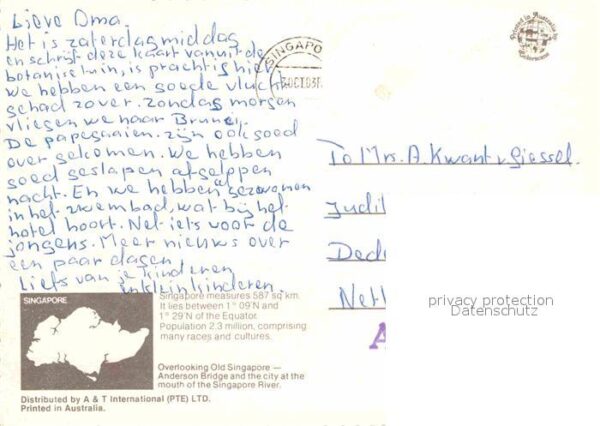 Lieve Oma.
Het is zaterdagmiddag
en schrijf deze kaart vanuit de
botanische tuin, is prachtig hier
We hebben een goede vlucht
gehad zover. Zondag morgen
vliegen we naar Brunei.
De papegaaien. zijn ook goed
over gekomen. We hebben
goed geslapen afgelopen
nacht. En we hebben al gezwommen
in het zwembad, wat bij het
hotel hoort. Net iets voor de
jongens. Meer nieuws over
een paar dagen
Liefs van je kinderen
en kleinkinderen.
SINGAPO
Printed in Australia
To Mrs. A. Kwant v Giessel.
Judit
Dede
Nett
privacy protection
Datenschutz
A
SINGAPORE
Singapore measures 587 sq km.
It lies between 1° 09'N and
1° 29'N of the Equator.
Population 2.3 million, comprising
many races and cultures.
Overlooking Old Singapore —
Anderson Bridge and the city at the
mouth of the Singapore River.
Distributed by A & T International (PTE) LTD.
Printed in Australia.